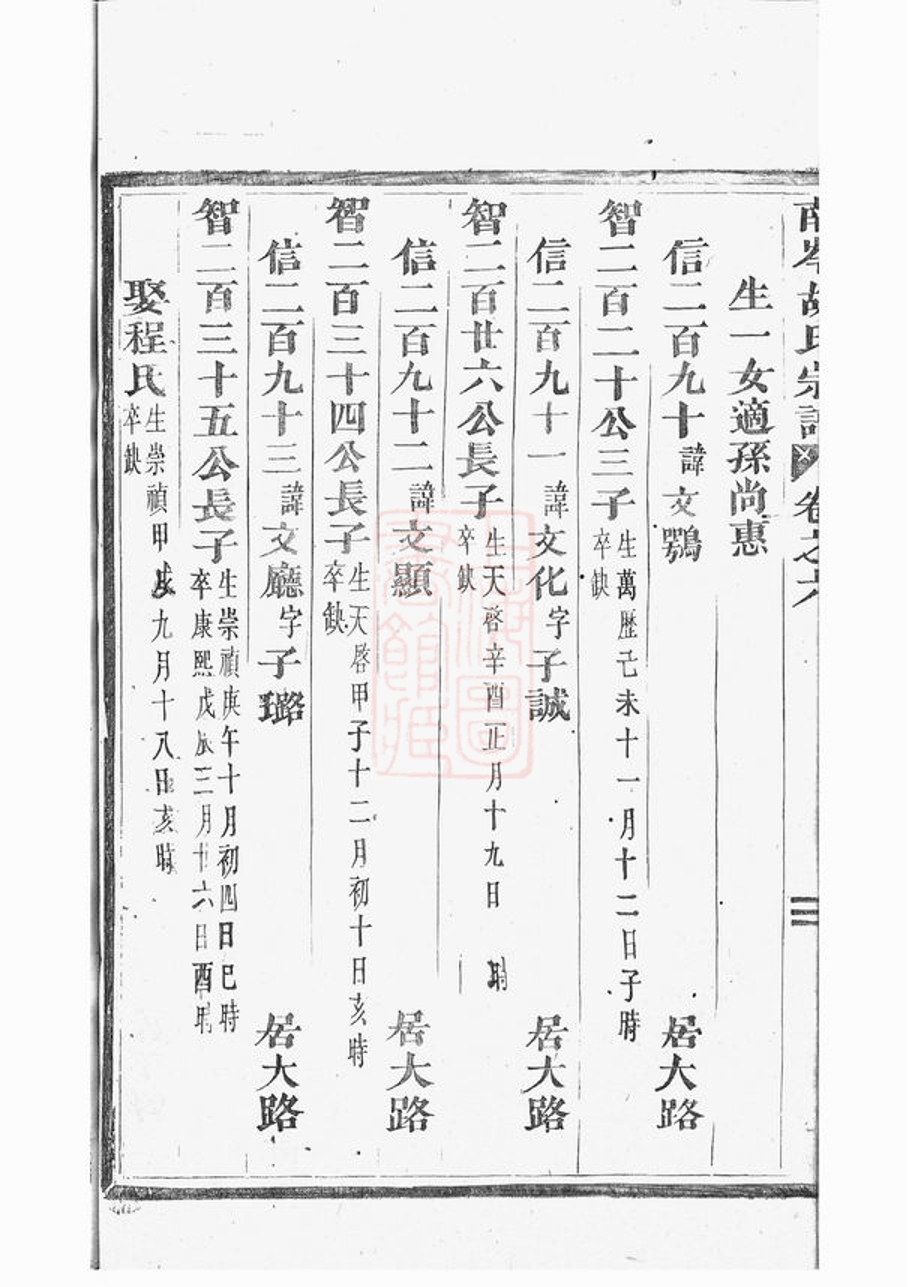 南岑胡氏宗譜 卷之六
生一女適孫尚惠
信二百九十諱文鶚 居大路
智二百二十公三子生萬歷己未十一月十二日子時卒缺
信二百九十一諱文化字子誠 居大路
智二百廿六公長子生天啓辛酉正月十九日 時卒缺
信二百九十二諱文顯 居大路
智二百三十四公長子生天啓甲子十二月初十日亥時卒缺
信二百九十三諱文廳字子璐 居大路
智二百三十五公長子生崇禎庚午十月初四日巳時卒康熙戊辰三月廿六日酉時
娶程氏生崇禎甲 九月十八日亥時卒缺